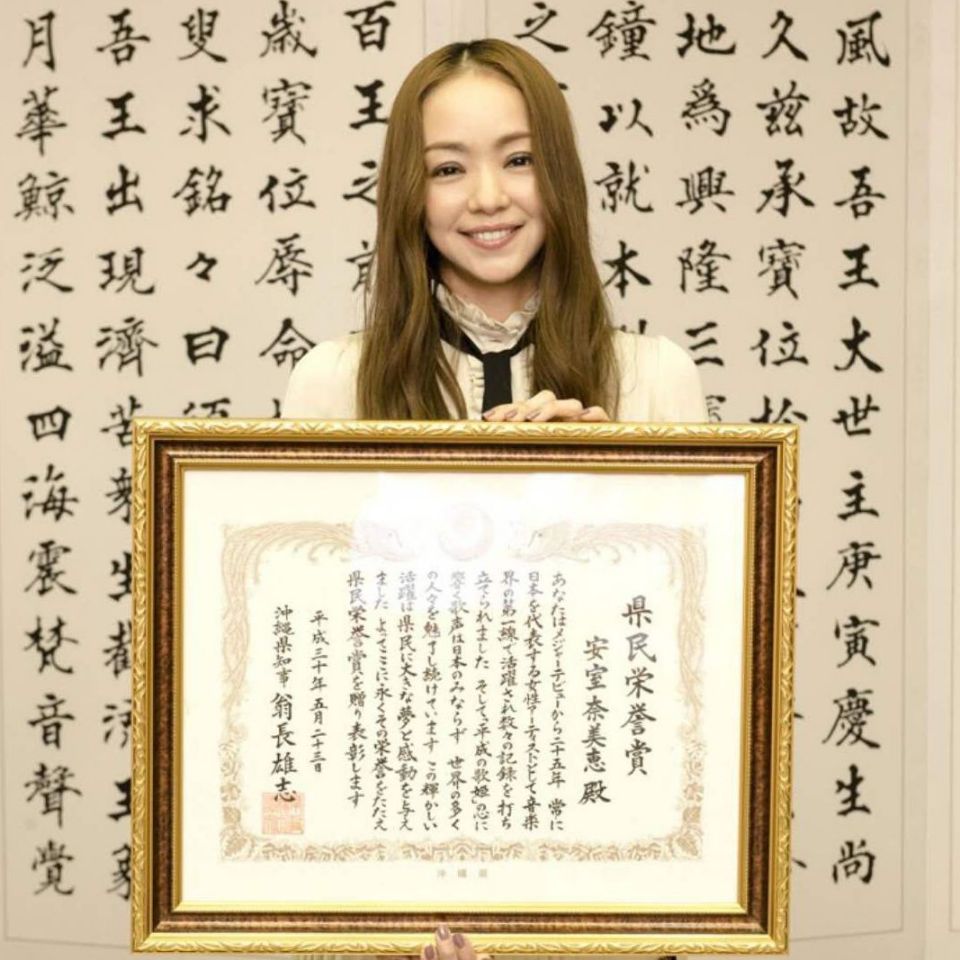 風故吾王大世主庚寅慶生尚
久茲承寶位於
地爲興隆三
鐘以就本
之
百王之前
歳寶位辱命
叟求銘々曰須
吾王出現濟苦衆生截流王象
月華鯨泛溢四海震梵音聲覺
県民栄誉賞
安室奈美恵殿
あなたはメジャーデビューから二十五年 常に
日本を代表する女性アーティストとして音楽
界の第一線で活躍され数々の記録を打ち
立てられました そして、「平成の歌姫」の心に
響く歌声は日本のみならず 世界の多く
の人々を魅了し続けています この輝かしい
活躍は県民に大きな夢と感動を与え
ました よってここに永くその栄誉をたたえ
県民栄誉賞を贈り表彰します
平成三十年五月二十三日
沖縄県知事 翁長雄志
沖縄県